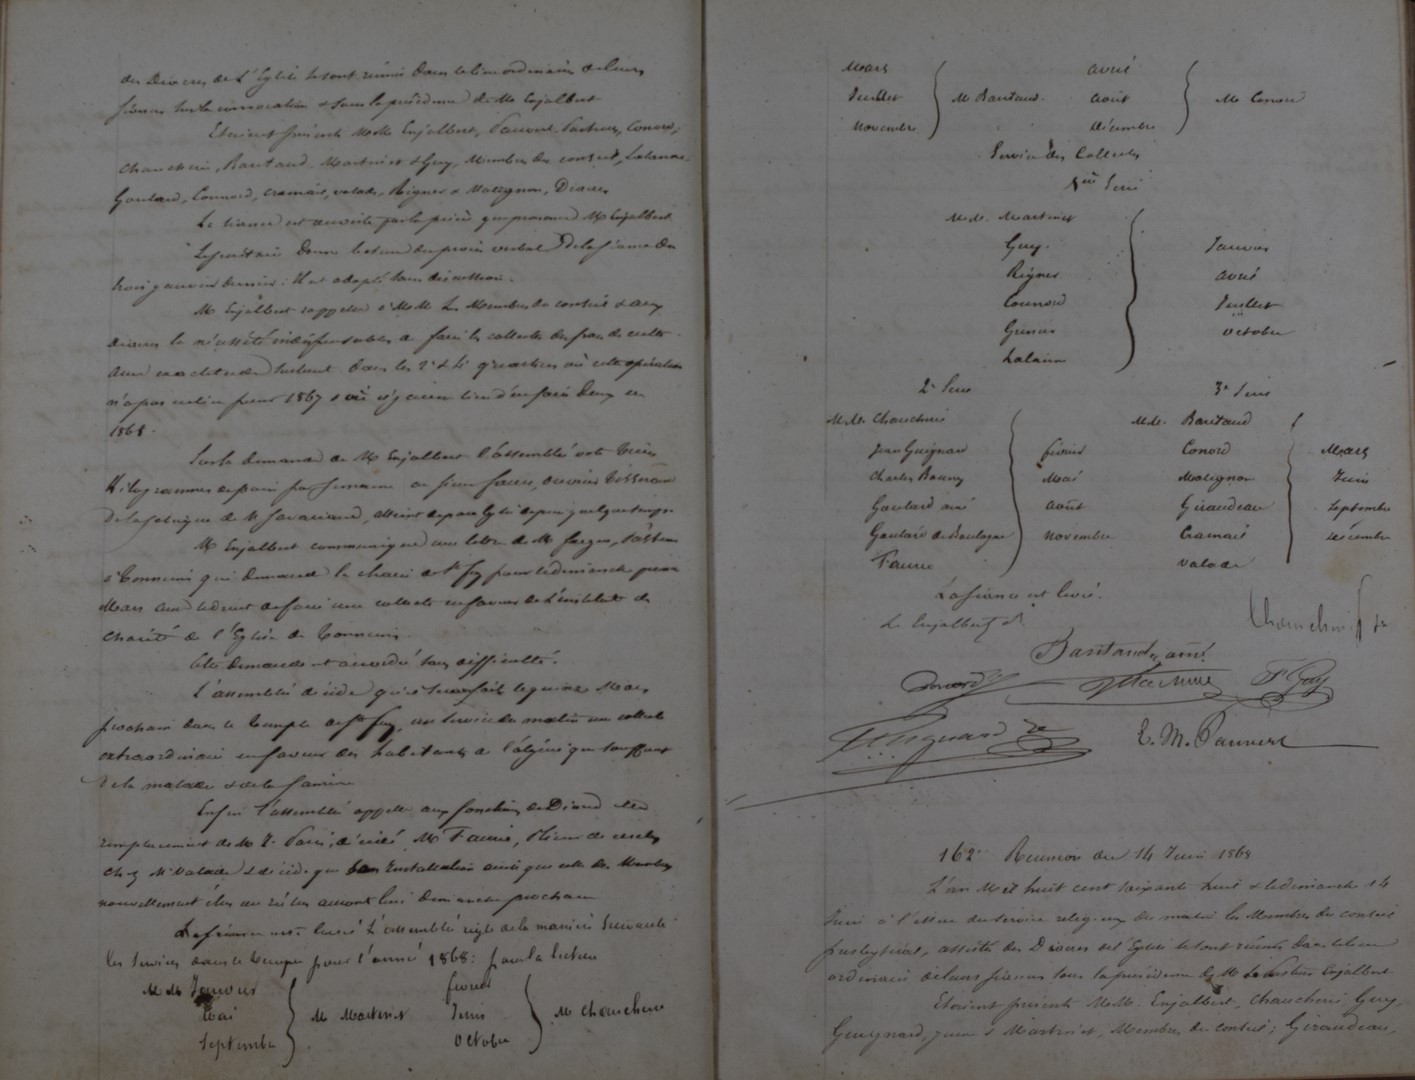 des Diacres de l'Eglise se sont réunis dans le lieu ordinaire de leurs
séances sur la convocation & sous la présidence de Mr Enjalbert
Etaient présents M.M. Enjalbert, Pauvert, Pasteurs, Conord,
Chaucherie, Bautaud, Martinet & Guy, Membres du conseil, Lalanne
Goulard, Connord, Cramail, Valade, Rigner & Matignon, Diacres
La séance est ouverte par la prière que prononce Mr Enjalbert
Le secrétaire donne lecture du procès verbal de la séance du
trois janvier dernier: Il est adopté sans discussion.
Mr Enjalbert rappelle à M.M. les Membres du conseil & aux
diacres la nécessité indispensable de faire les collectes des frais de culte
avec exactitude surtout dans les 2e & 4e quartiers où cette opération
n'a pas eu lieu pour 1867 & où il y aura lieu d'en faire deux en
1868.
Sur la demande de Mr Enjalbert l'assemblée vote trois
Kilogrammes de pain par semaine au sieur, ouvrier tisserand
de la fabrique de Mr, atteint de depuis quelque temps
Mr Enjalbert communique une lettre de Mr, Pasteur
à Tonneins qui demande la chaire de Ste Foy pour le dimanche
Mars aux de faire une collecte en faveur de l'institut de
charité de l'Eglise de Tonneins.
Cette demande est accordée sans difficulté.
L'assemblée décide qu'il sera fait le quinze Mars
prochain dans le Temple de Ste Foy, au service du matin une collecte
extraordinaire en faveur des habitants de l'algérie qui souffrent
de la maladie & de la famine
Enfin l'assemblée appelle aux fonctions de Diacre en
remplacement de Mr, décédé, Mr Faurie,
chez Mr Valade & décide que son Installation ainsi que celle des Membres
nouvellement élus ou réélus auront lieu dimanche prochain
L'assemblée règle de la manière suivante
les services dans le temple pour l'année 1868: pour la lecture
M.M. Janvier
Mai
Septembre
M Martinet
février
Juin
Octobre
M Chaucherie
Mars
Juillet
Novembre
M Bautaud.
avril
août
décembre
M Conord
Service des Collectes
1ère Serie
M.M. Martinet
Guy.
Rigner
Connord
Grenier
Lalanne
Janvier
avril
Juillet
octobre
2e Serie
M.M. Chaucherie
Jean Guignard
Charles Bonny
Goulard ainé
Goulard de Boulogne
Faurie
février
Mai
août
novembre
3e Serie
M.M. Bautaud
Conord
Matignon
Giraudeau
Cramail
Valade
Mars
Juin
Septembre
décembre
La séance est levée.
Bautaud ainé
Conord
Martinet
F Guy
Guignard
E. M. Pauvert
162e Reunion du 14 Juin 1868
L'an Mil huit cent soixante huit & le dimanche 14
Juin à l'issue du service religieux du matin les Membres du conseil
presbytéral, assistés des Diacres de l'Eglise se sont réunis dans le lieu
ordinaire de leurs séances sous la présidence de Mr le Pasteur Enjalbert
Etaient présents M.M. Enjalbert, Chaucherie, Guy,
Guignard, & Martinet, Membres du conseil; Giraudeau,